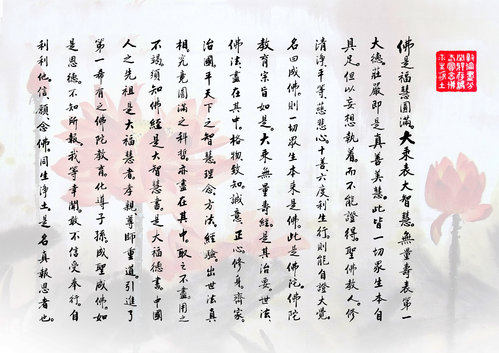 佛是福慧圓滿。大乘表大智慧。無量壽表第一
大德莊嚴即是真善美慧。此皆一切眾生本自
具足。但以妄想執着而不能證得。聖佛教人。修
清淨平等慈悲心十善六度利生行。則能自證大覺。
名曰成佛。則一切眾生本來是佛。此是佛陀。佛陀
教育宗旨如是。大乘無量壽經。是其治要。世法、
佛法。盡在其中。格物致知。誠意、正心。修身。齊家。
治國。平天下之智慧理念。方法。經驗。出世法真
相。究竟圓滿之科哲。亦盡在其中。取之不盡。用之
不竭。須知佛經是大智慧書。是大福德書。中國
人之先祖。是大福慧者。孝親尊師重道。引進了
第一希有之佛陀教育。化導子孫。成聖成佛。如
是恩德。不知所報。我等幸聞。敢不信受奉行。自
利利他。信願念佛。同生淨土。是名真報恩者也。